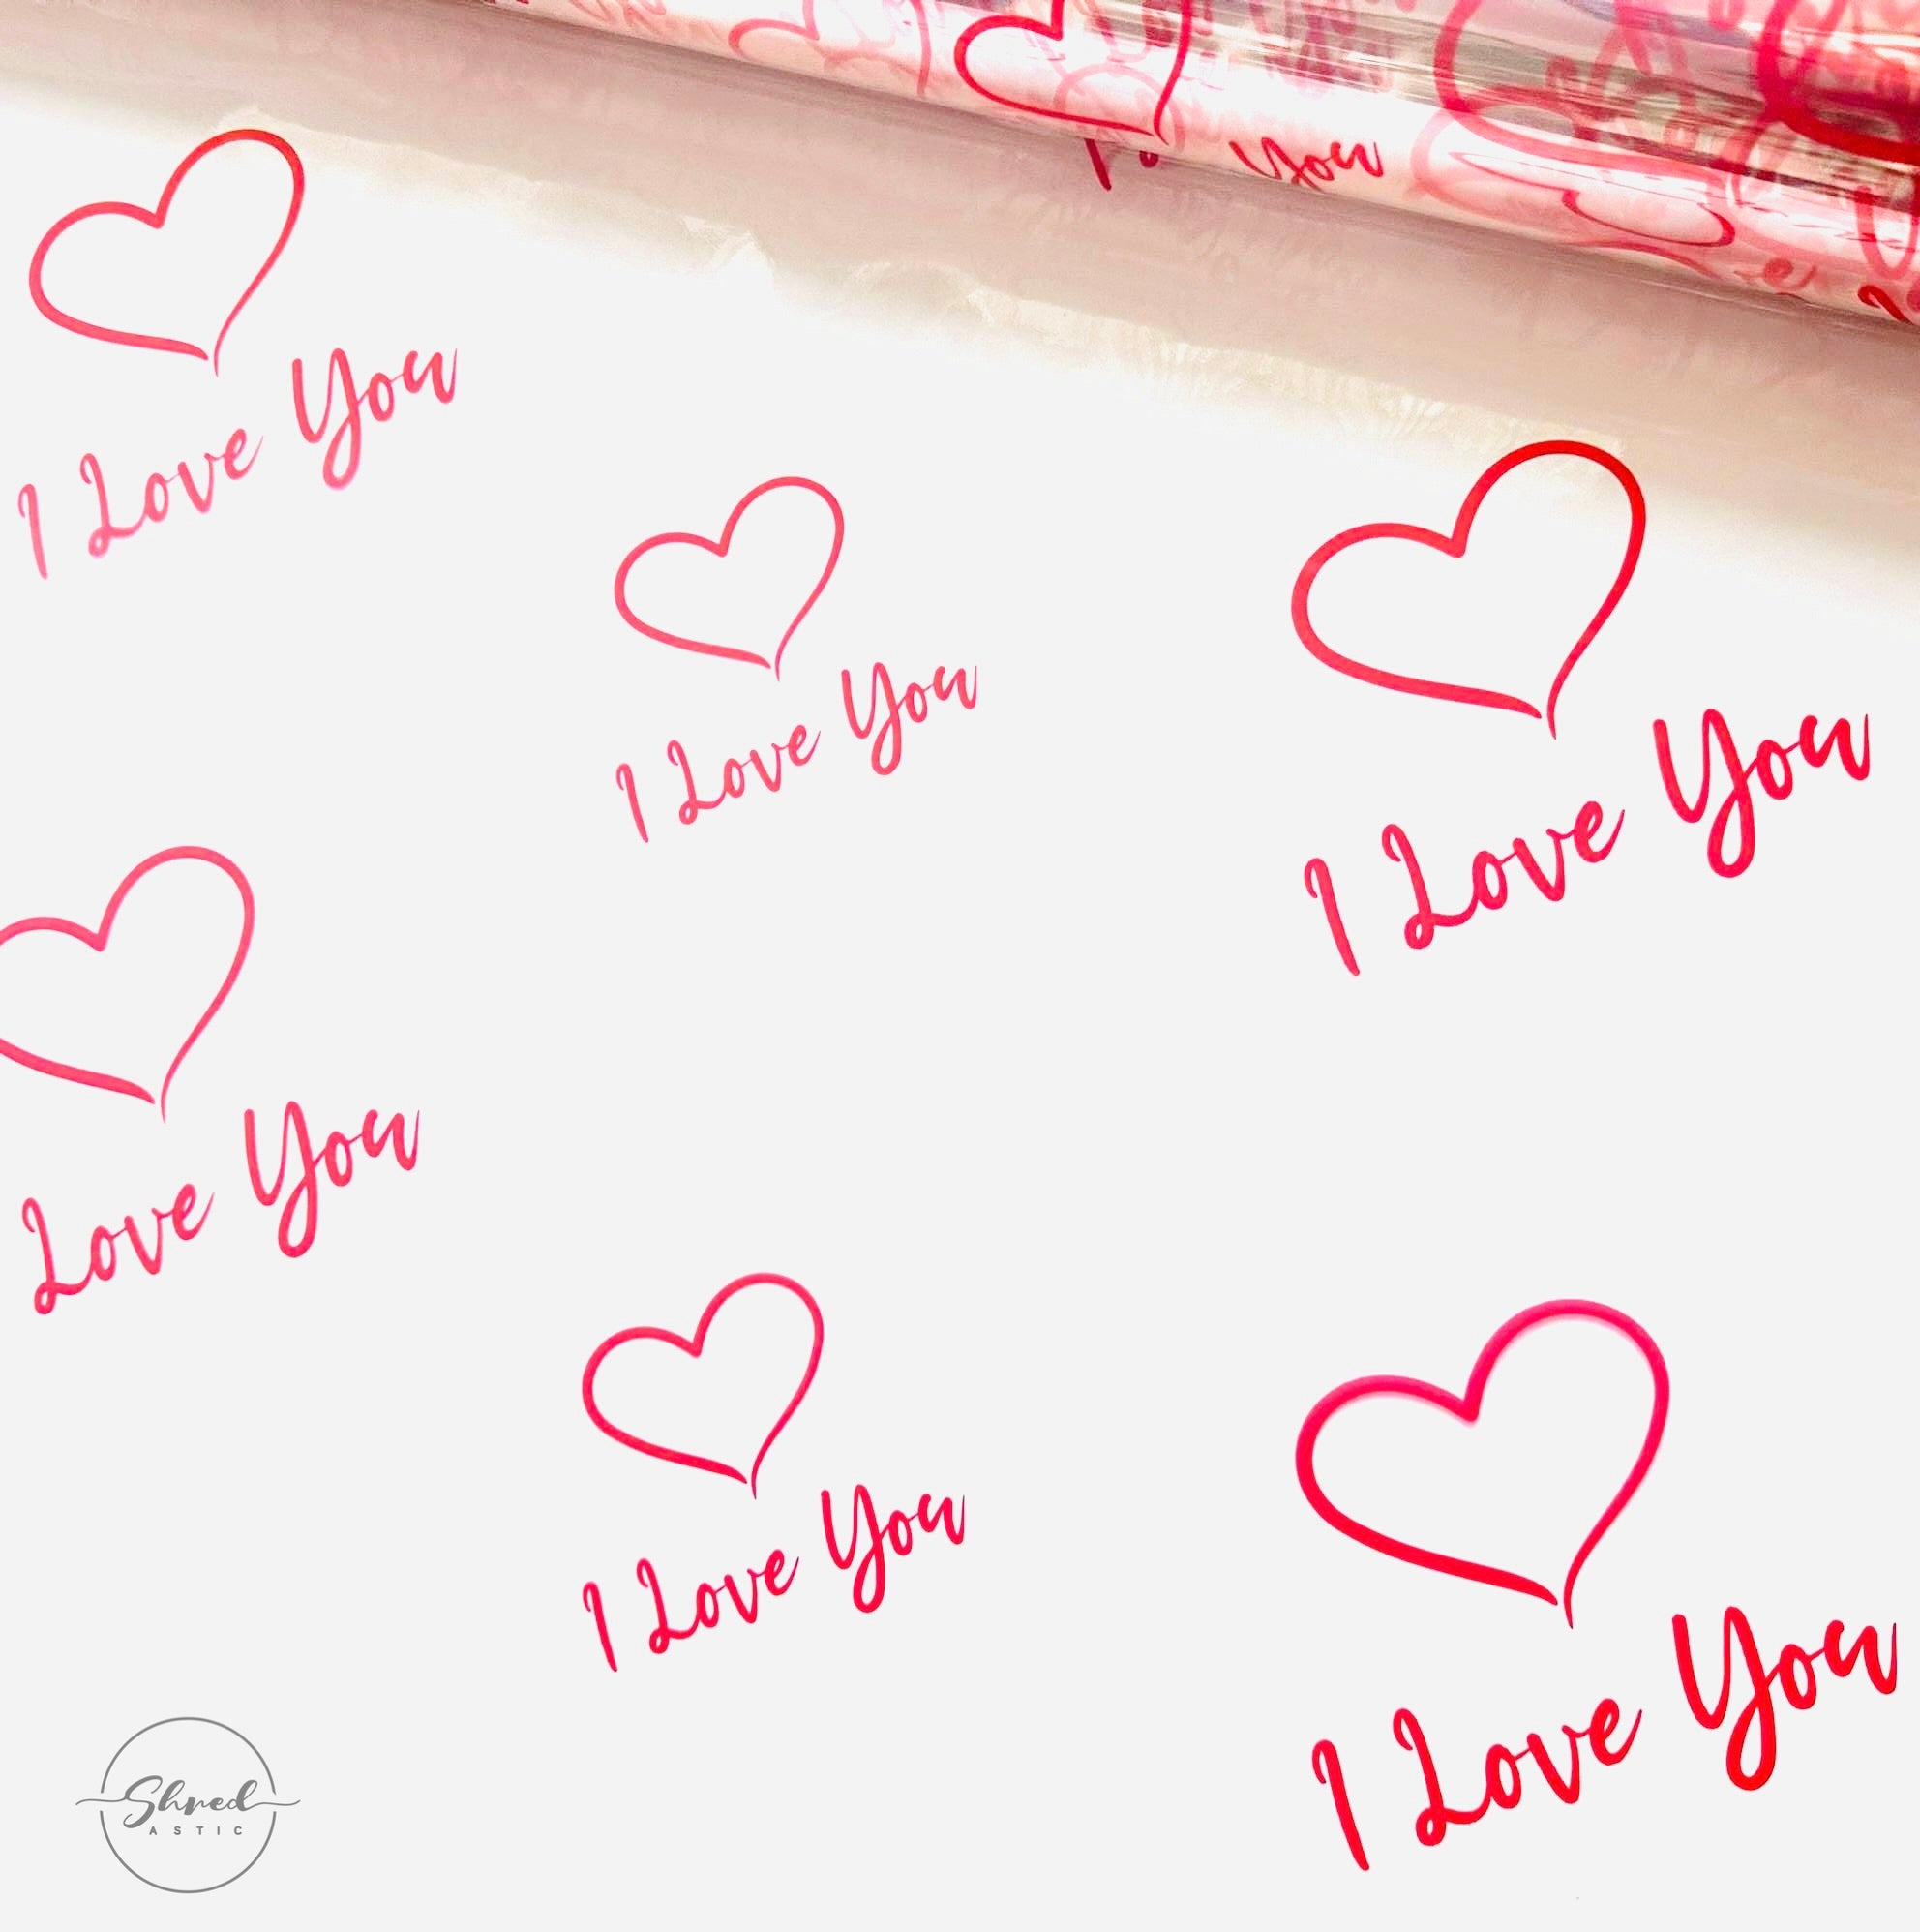 You
I Love You
I Love You
I Love You
Love You
I Love You
I Love You
Shred
ASTIC